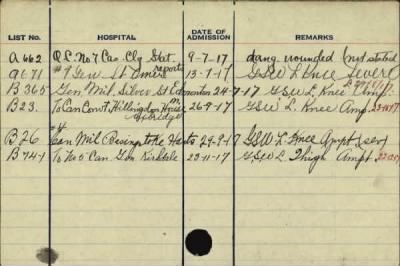 LIST No. HOSPITAL DATE OF ADMISSION REMARKS
A 662 O.C. No 7 Cas. Clg Stat 9-7-17 dang wounded (not stated
reports
A 671 #7 Gen St Omer 13-7-17 GSW L Knee Severe
B 365 Gen. Mil. Silver St Edmonton 24-7-17 GSW L Knee Amp.
B 23. To Can Conv. Hillingdon House 26-9-17 GSW L. Knee Amp.
Uxbridge
#4
B 26 Can Mil Basingstoke Hants 29-9-17 GSW L Knee Ampt (sev)
B 74-1 To No 5 Can. Gen Kirkdale 23-11-17 GSW L Thigh Ampt.